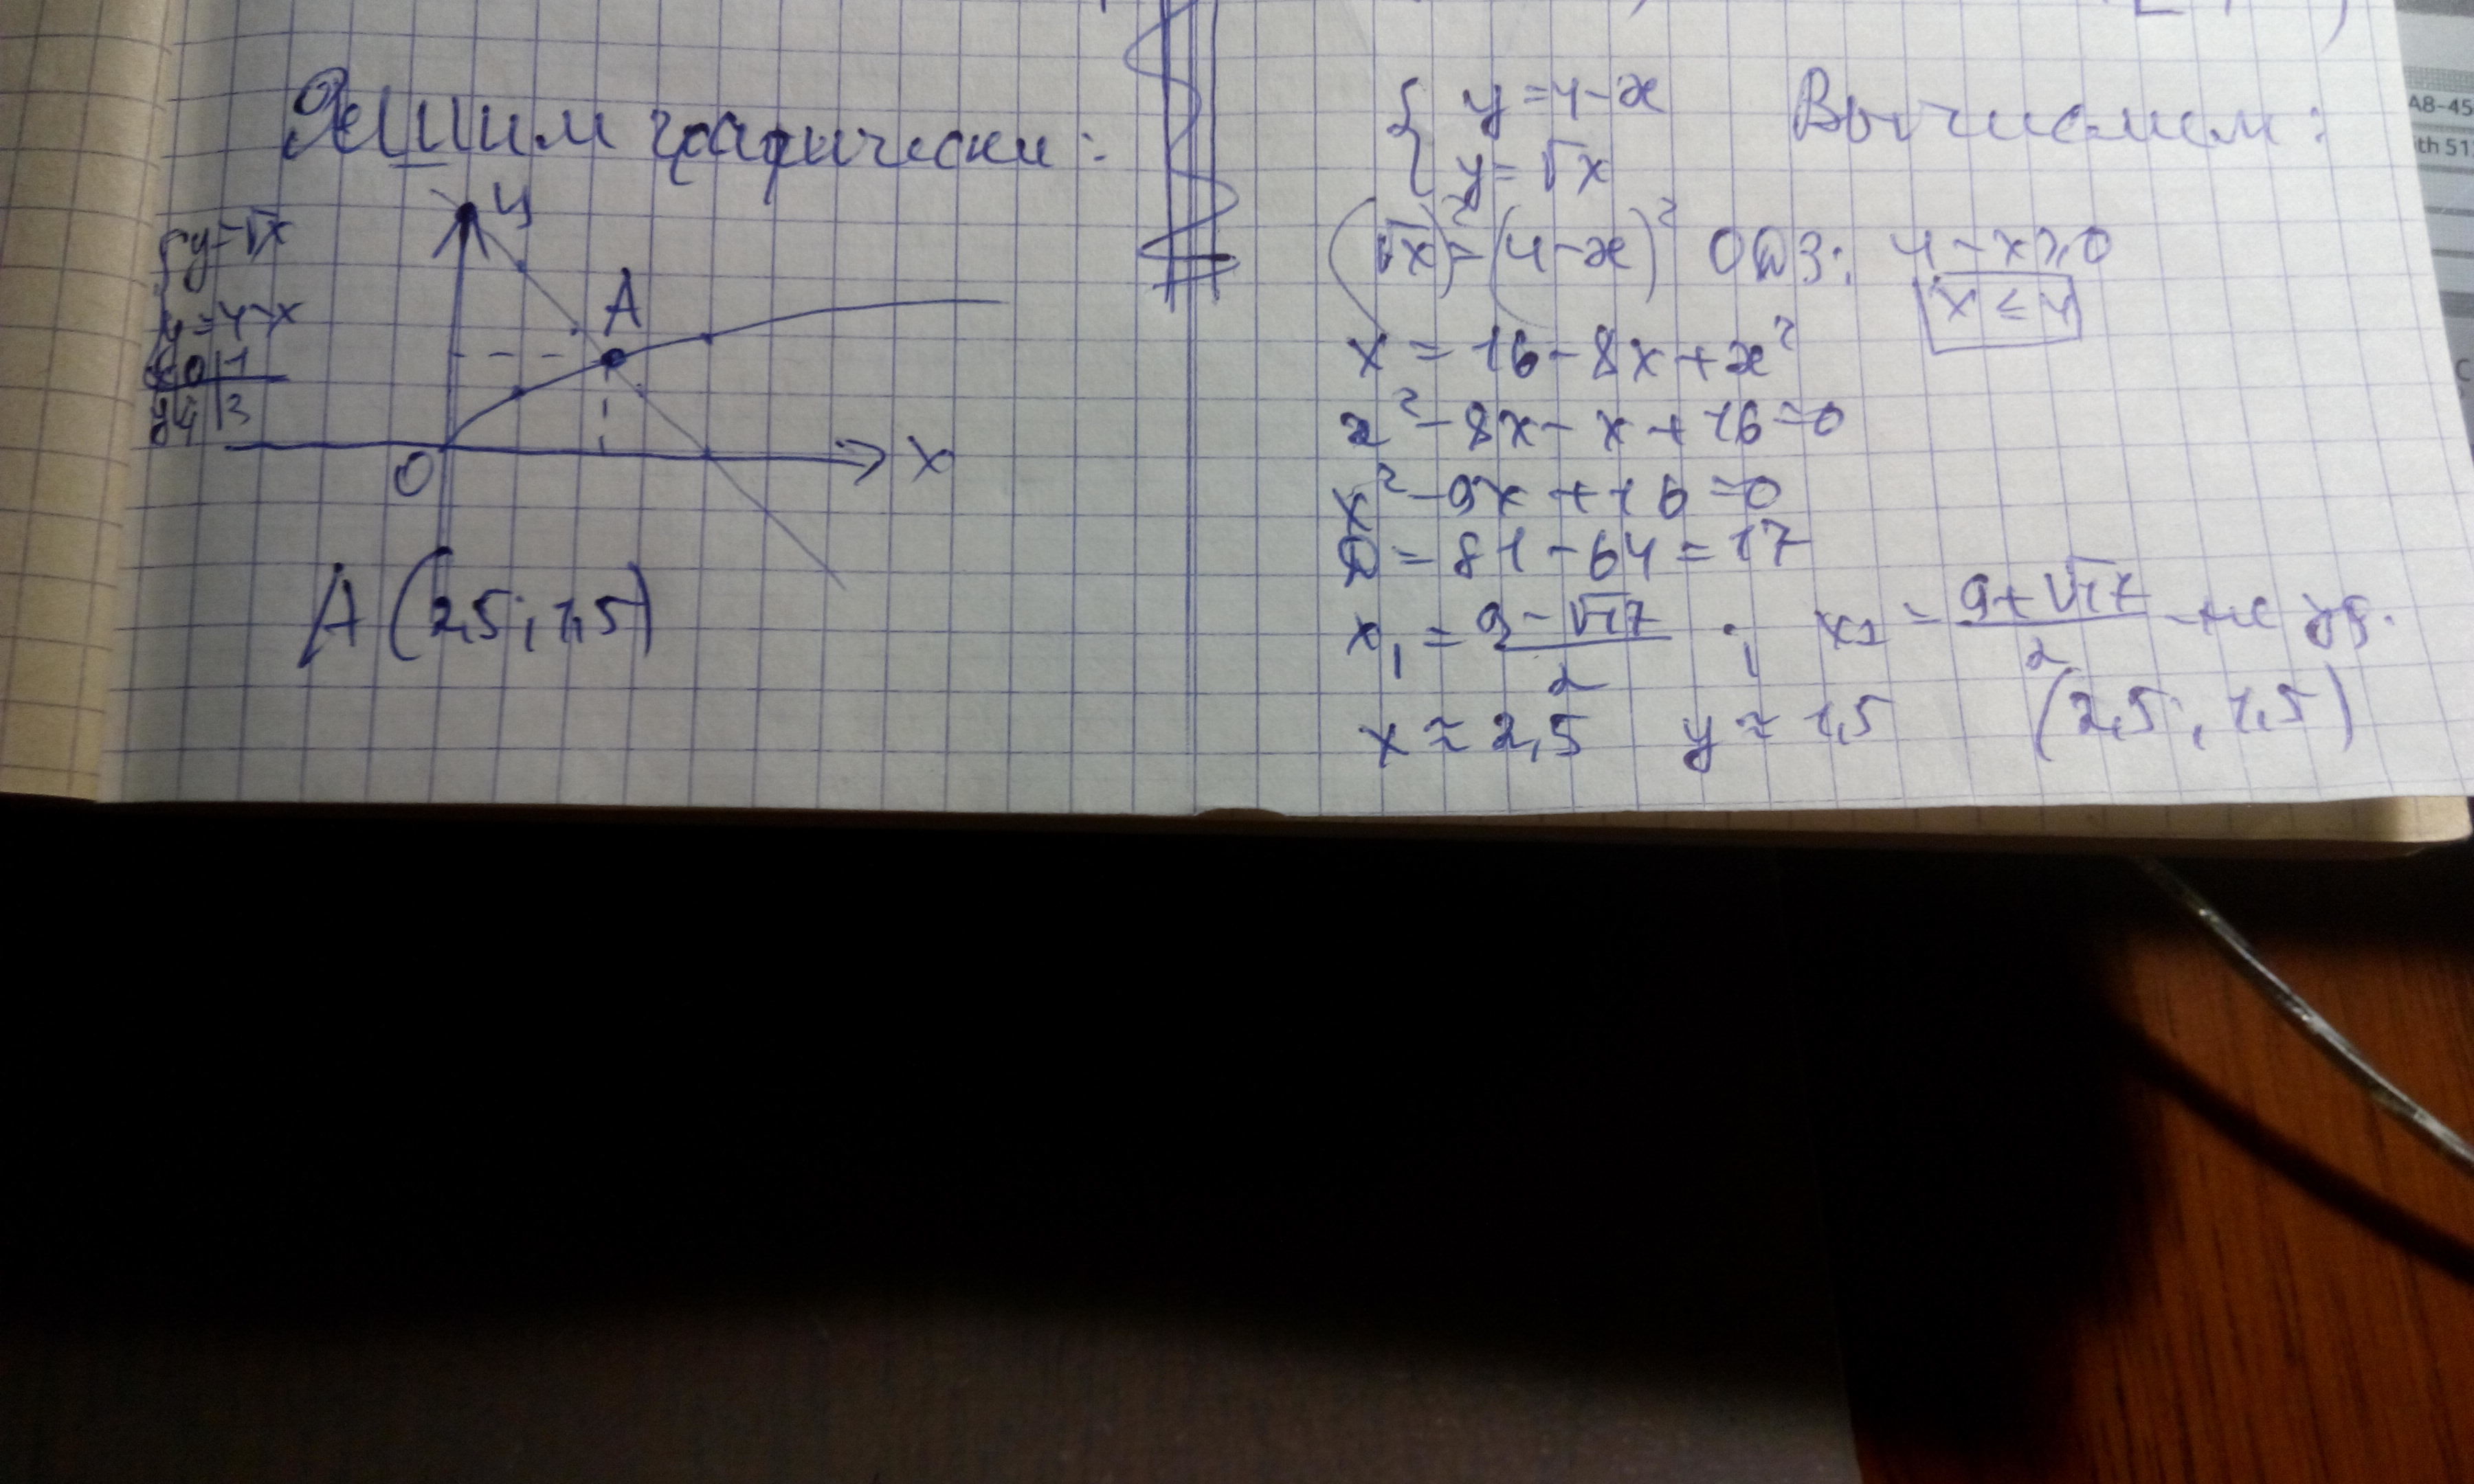 Решим графически:
y
{ y=√x
y=4-x
x 0 | 1
y 4 | 3
A
O
x
A (2,5; 1,5)
{ y=4-x
y=√x
Вычислим:
(√x)²=(4-x)² ОДЗ: 4-x≥0
x≤4
x=16-8x+x²
x²-8x-x+16=0
x²-9x+16=0
D=81-64=17
x₁=(9-√17)/2 ; x₂=(9+√17)/2 -не уд.
x≈2,5 y≈1,5 (2,5; 1,5)
A8-45
th 51